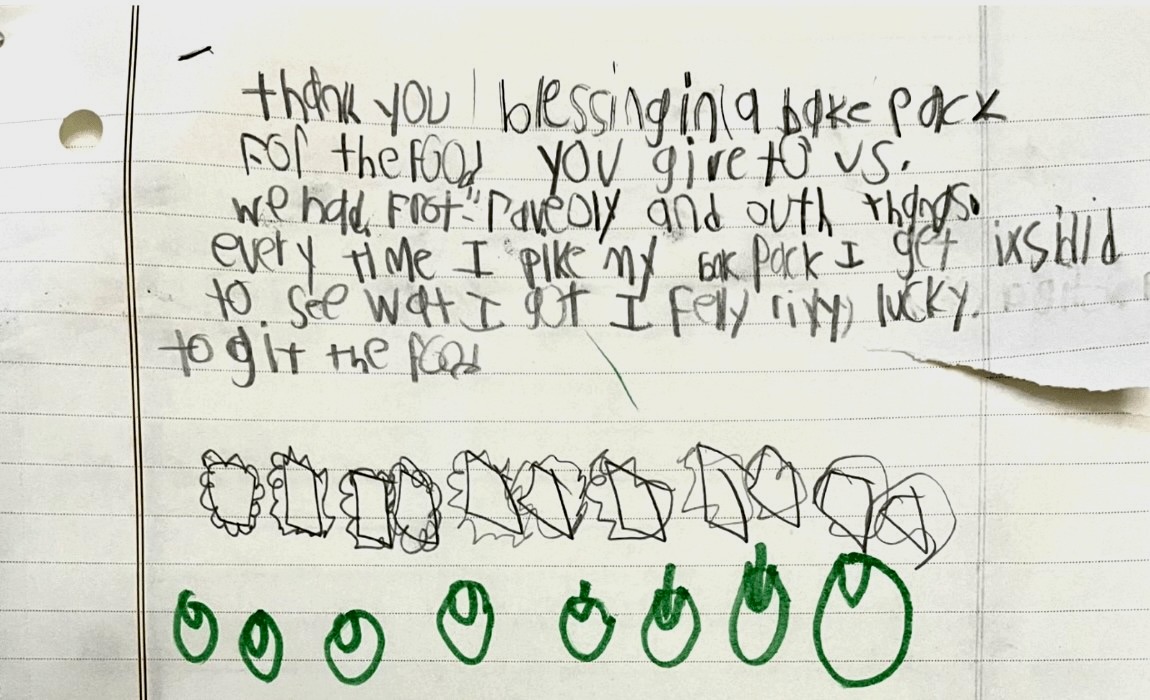 thank you blessing in a bake pack
For the Food you give to us.
we had Frot Raveoly and outh thangs.
every time I pike my bak pack I get
to see wat I got I Felly lucky.
to git the Food